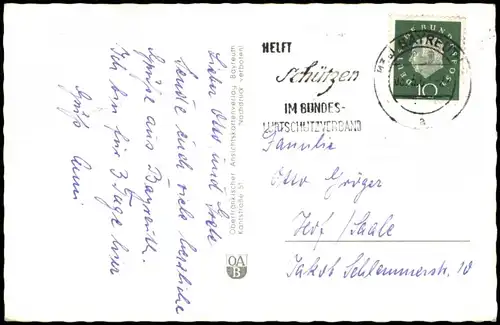 Lieber Otto und Grete
sende euch viele herzliche
Grüße aus Bayreuth.
Ich bin für 3 Tage hier
Gruß Anni
Oberfränkischer Ansichtskartenverlag Bayreuth
Kantstraße 51 Nachdruck verboten!
OA
B
HELFT
schützen
IM BUNDES-
LUFTSCHUTZVERBAND
DEUTSCHE BUNDESPOST
10
a
Familie
Otto Gröger
Hof/Saale
Jakob Schlemmerstr. 10